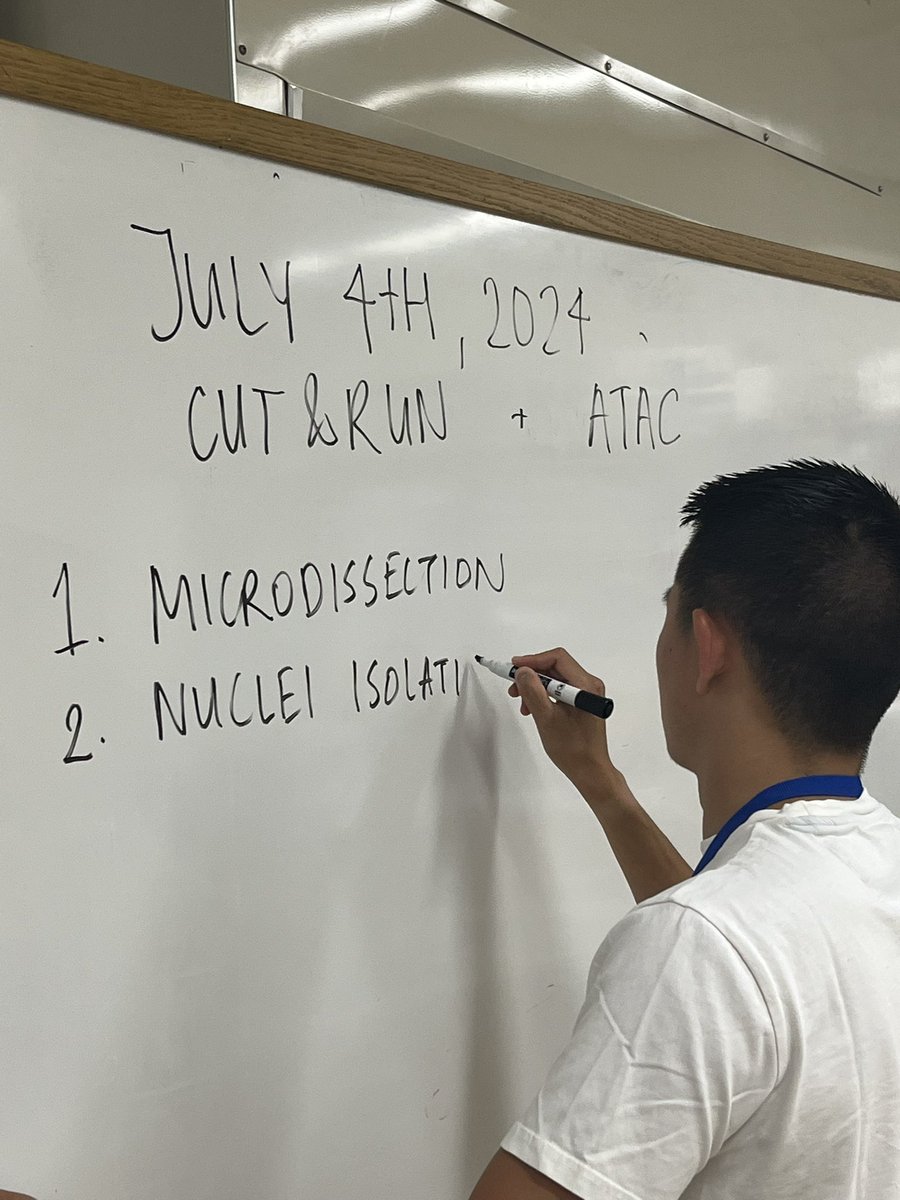 JULY 4TH, 2024
CUT&RUN + ATAC
1. MICRODISSECTION
2. NUCLEI ISOLATI